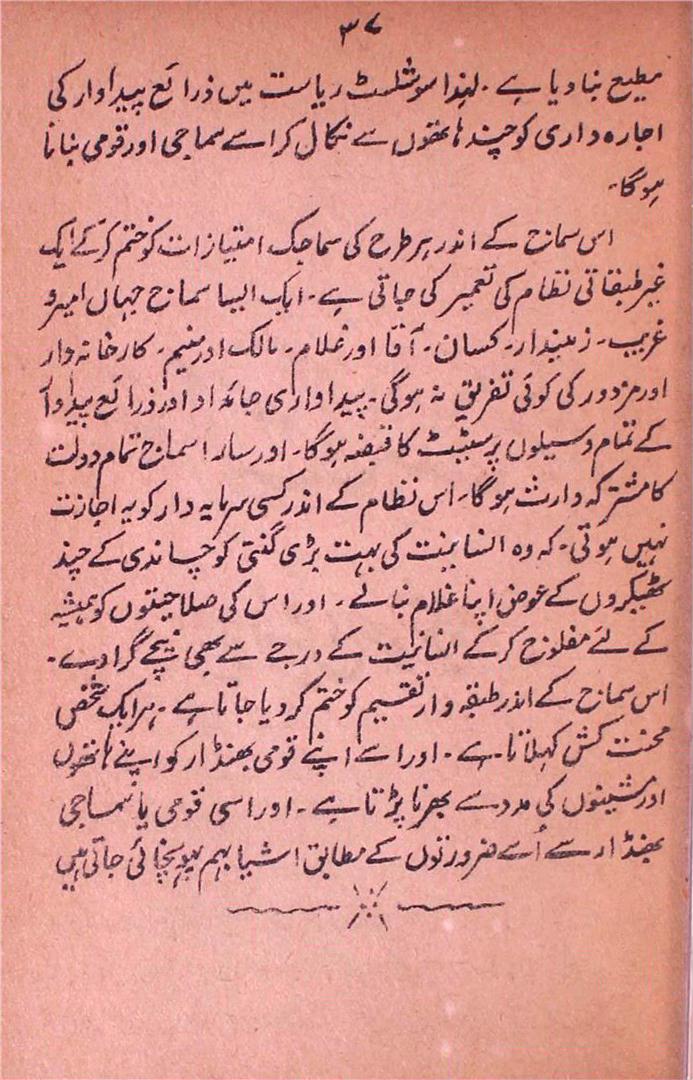 ۳۷
مطیع بنا دیا ہے۔ لہٰذا سوشلسٹ ریاست میں ذرائع پیداوار کی
اجارہ داری کو چند ہاتھوں سے نکال کر اسے سماجی اور قومی بنانا
ہوگا۔
اس سماج کے اندر ہر طرح کی سماجک امتیازات کو ختم کرکے ایک
غیر طبقاتی نظام کی تعمیر کی جاتی ہے۔ ایک ایسا سماج جہاں امیر و
غریب۔ زمیندار۔ کسان۔ آقا اور غلام۔ مالک اور منیم۔ کارخانہ دار
اور مزدور کی کوئی تفریق نہ ہوگی۔ پیداواری جائداد اور ذرائع پیداوا
کے تمام وسیلوں پر سٹیٹ کا قبضہ ہوگا۔ اور سارا سماج تمام دولت
کا مشترکہ وارث ہوگا۔ اس نظام کے اندر کسی سرمایہ دار کو یہ اجازت
نہیں ہوتی۔ کہ وہ انسانیت کی بہت بڑی گنتی کو چاندی کے چند
ٹھیکروں کے عوض اپنا غلام بنالے۔ اور اس کی صلاحیتوں کو ہمیشہ
کے لئے مفلوج کرکے انسانیت کے درجے سے بھی نیچے گرا دے۔
اس سماج کے اندر طبقہ وار تقسیم کو ختم کر دیا جاتا ہے۔ ہر ایک شخص
محنت کش کہلاتا ہے۔ اور اسے اپنے قومی بھنڈار کو اپنے ہاتھوں
اور مشینوں کی مدد سے بھرنا پڑتا ہے۔ اور اسی قومی یا سماجی
بھنڈار سے اُسے ضرورتوں کے مطابق اشیا بہم پہونچائی جاتی ہیں